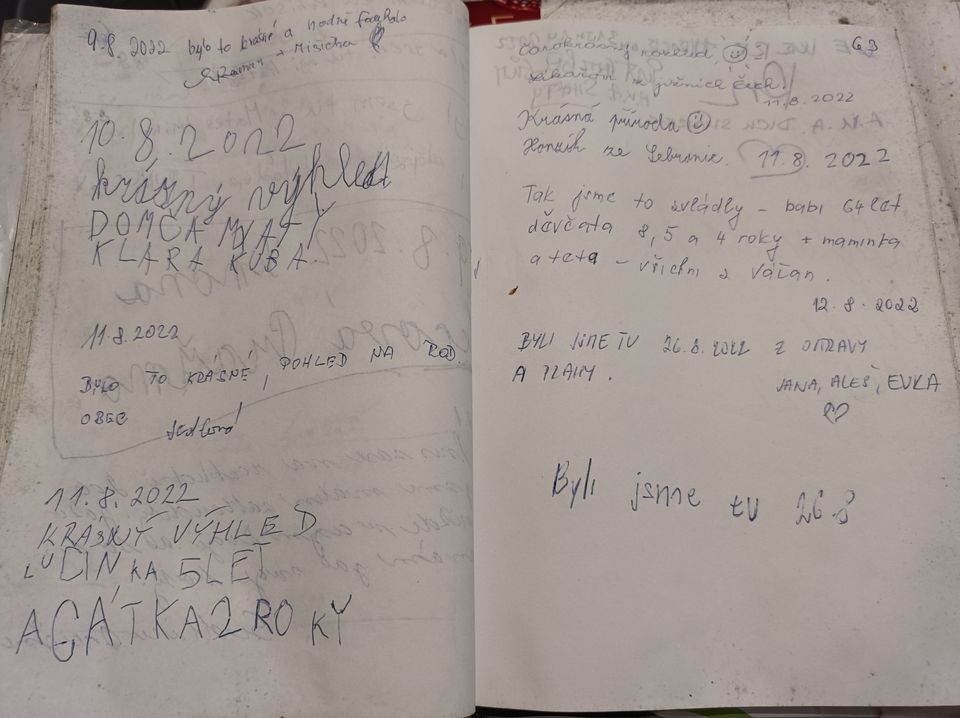 9.8.2022 bylo to krásné a hodně foukalo
Roman + Misicha
10.8.2022
krásný výhled
DOMČA MYATY
KLARA KUBA.
11.8.2022
BYLO TO KRÁSNÉ, POHLED NA ROD.
OBEC
11.8.2022
KRASNÝ VÝHLED
LUCINKA 5LET
AGÁTKA 2 ROKY
63
Čarokrásný
z jižních Čech!
11.8.2022
Krásná příroda
Honzík ze Lebronic. 11.8.2022
Tak jsme to zvládly - babi 64 let
děvčata 8, 5 a 4 roky + maminka
a teta - všichni z Vážan.
12.8.2022
BYLI JSME TU 26.8.2022 Z OPAVY
A PRAHY.
JANA, ALEŠ, EVKA
Byli jsme tu 26.8